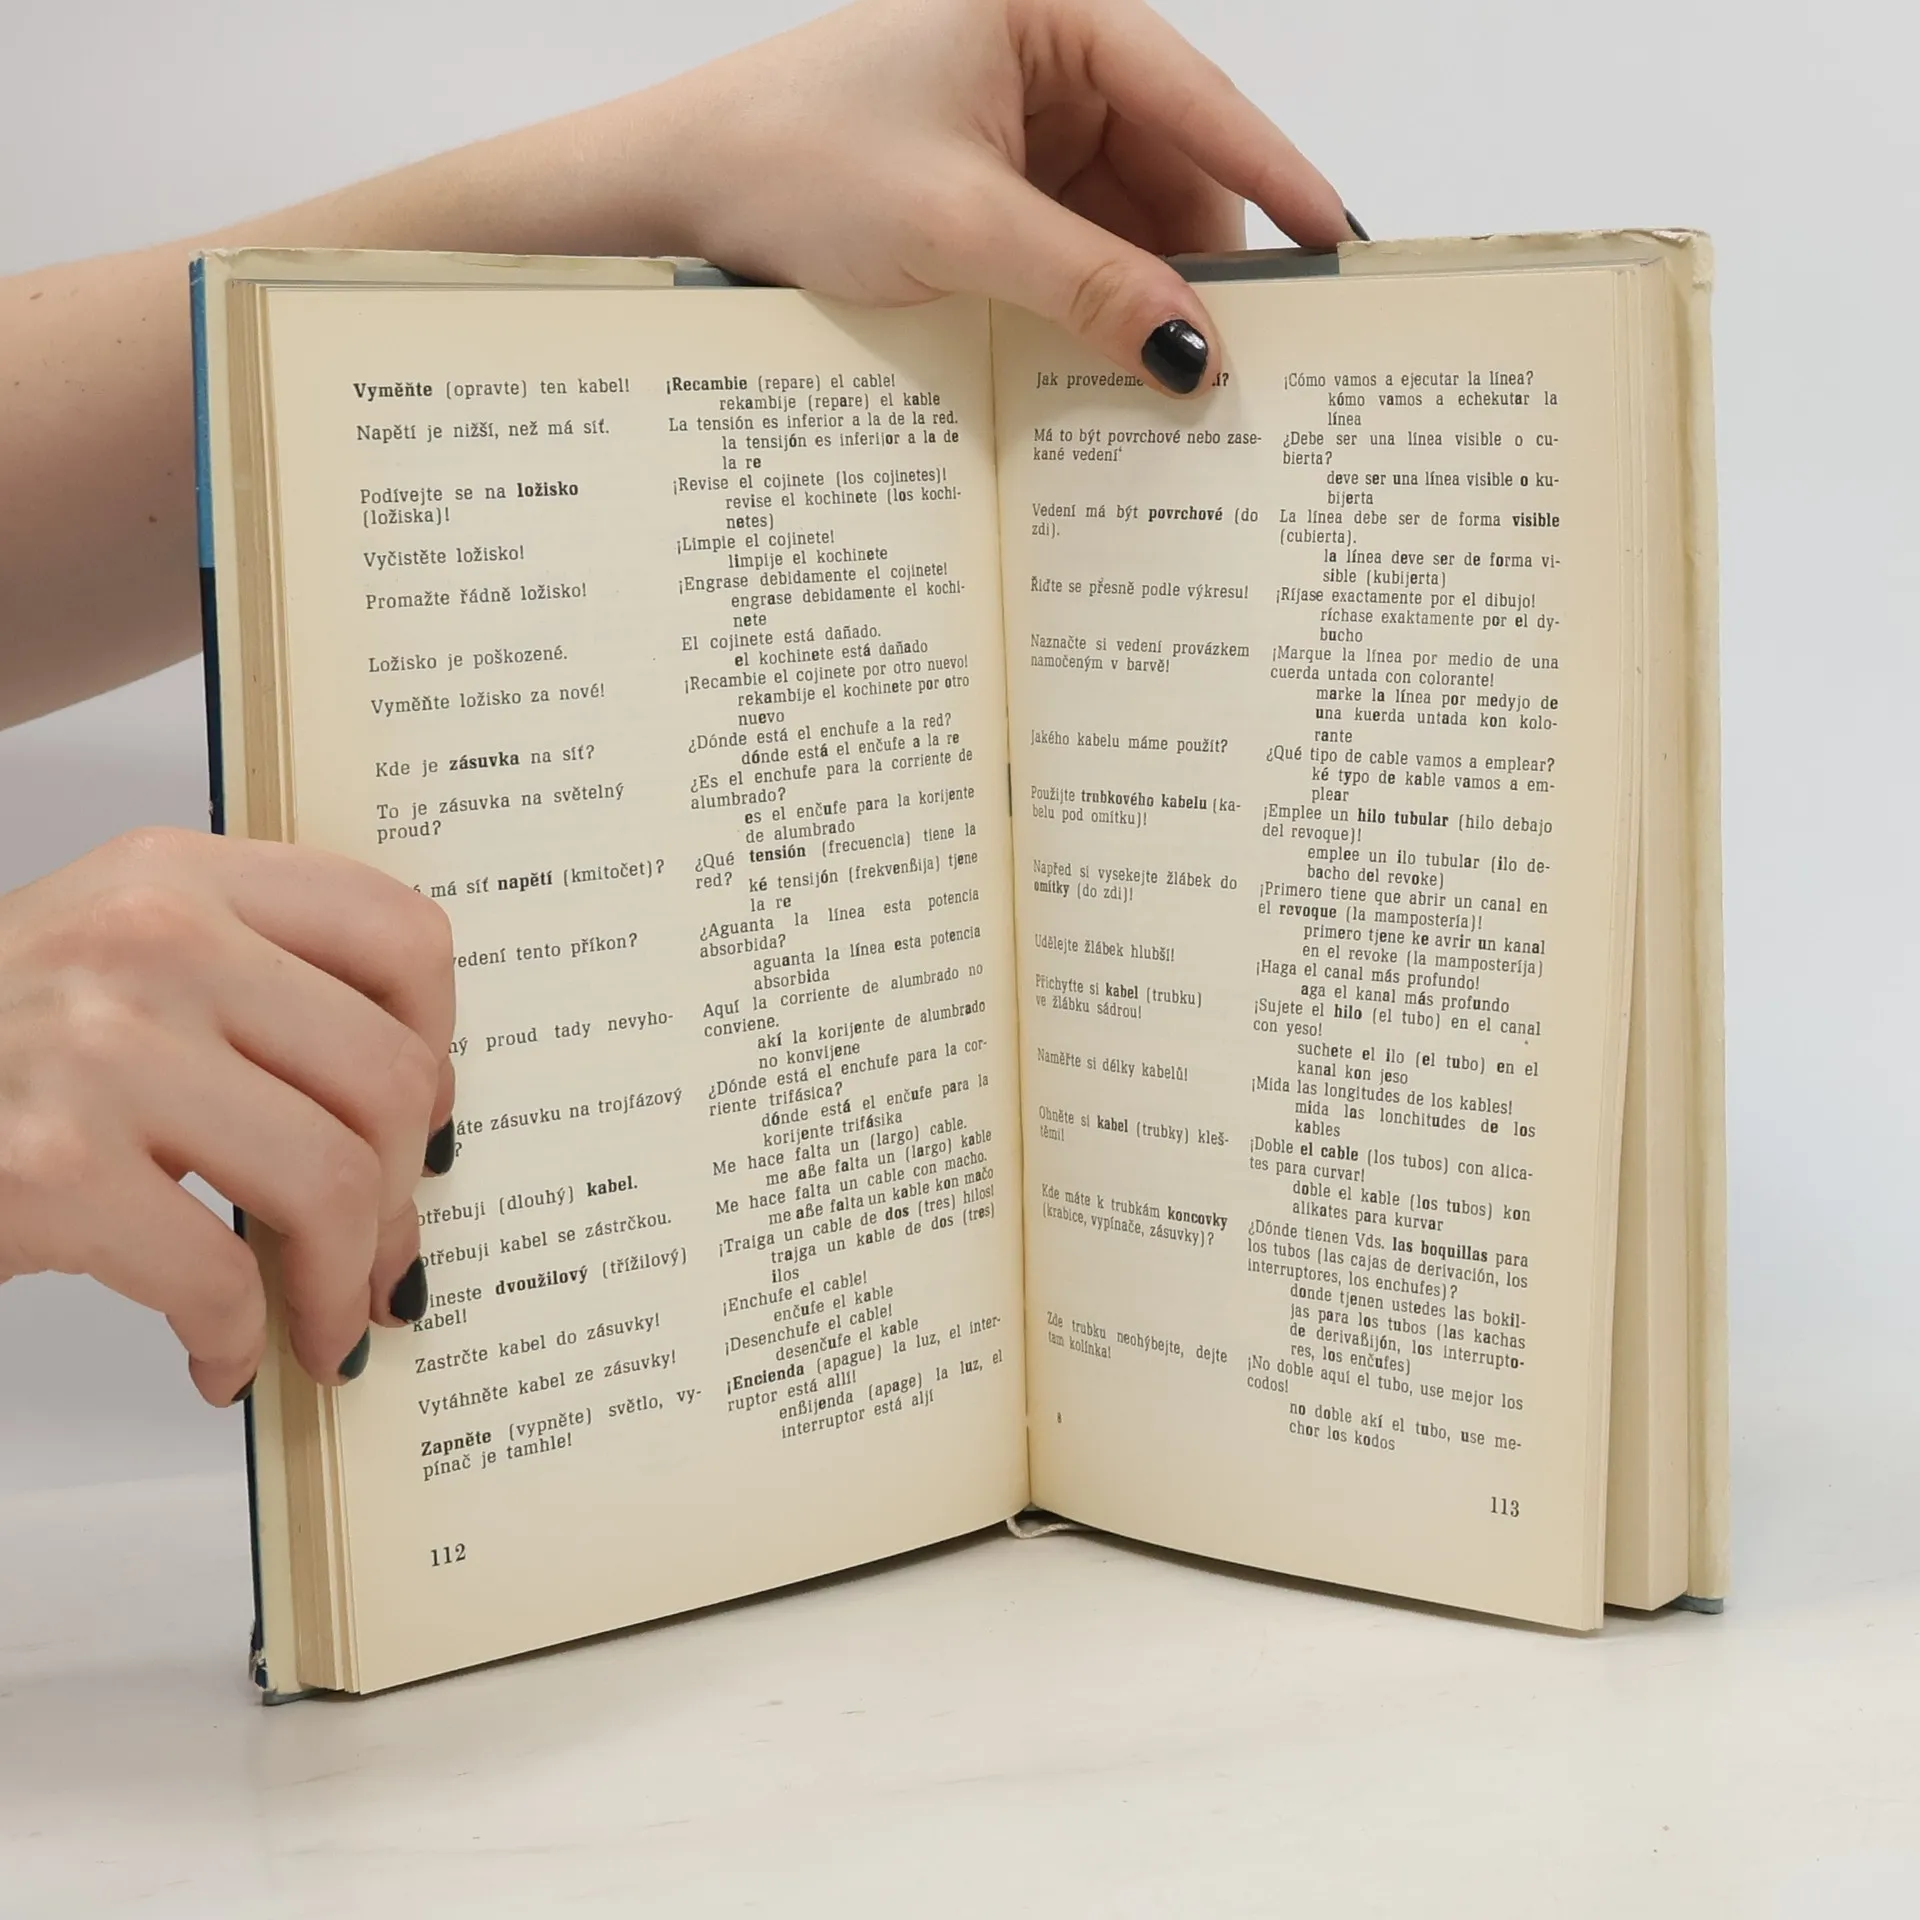 Vyměňte (opravte) ten kabel!
Napětí je nižší, než má síť.
Podívejte se na ložisko
(ložiska)!
Vyčistěte ložisko!
Promažte řádně ložisko!
Ložisko je poškozené.
Vyměňte ložisko za nové!
Kde je zásuvka na síť?
To je zásuvka na světelný
proud?
má síť napětí (kmitočet)?
vedení tento příkon?
proud tady nevyho-
zásuvku na trojfázový
?
(dlouhý) kabel.
kabel se zástrčkou.
dvoužilový (třížilový)
kabel!
Zastrčte kabel do zásuvky!
Vytáhněte kabel ze zásuvky!
Zapněte (vypněte) světlo, vy-
pínač je tamhle!
¡Recambie (repare) el cable!
rekambije (repare) el kable
La tensión es inferior a la de la red.
la tensijón es inferijor a la de
la re
¡Revise el cojinete (los cojinetes)!
revise el kochinete (los kochi-
netes)
¡Limpie el cojinete!
limpije el kochinete
¡Engrase debidamente el cojinete!
engrase debidamente el kochi-
nete
El cojinete está dañado.
el kochinete está dañado
¡Recambie el cojinete por otro nuevo!
rekambije el kochinete por otro
nuevo
¿Dónde está el enchufe a la red?
dónde está el enčufe a la re
¿Es el enchufe para la corriente de
alumbrado?
es el enčufe para la korijente
de alumbrado
¿Qué tensión (frecuencia) tiene la
red?
ké tensijón (frekvenßija) tjene
la re
¿Aguanta la línea esta potencia
absorbida?
aguanta la línea esta potencia
absorbida
Aquí la corriente de alumbrado no
conviene.
akí la korijente de alumbrado
no konvijene
¿Dónde está el enchufe para la cor-
riente trifásica?
dónde está el enčufe para la
korijente trifásika
Me hace falta un (largo) cable.
me aße falta un (largo) kable
Me hace falta un cable con macho.
me aße falta un kable kon mačo
¡Traiga un cable de dos (tres) hilos!
trajga un kable de dos (tres)
ilos
¡Enchufe el cable!
enčufe el kable
¡Desenchufe el cable!
desenčufe el kable
¡Encienda (apague) la luz, el inter-
ruptor está allí!
enßijenda (apage) la luz, el
interruptor está aljí
112
Jak provedeme
Má to být povrchové nebo zase-
kané vedení
Vedení má být povrchové (do
zdi).
Řiďte se přesně podle výkresu!
Naznačte si vedení provázkem
namočeným v barvě!
Jakého kabelu máme použít?
Použijte trubkového kabelu (ka-
belu pod omítku)!
Napřed si vysekejte žlábek do
omítky (do zdi)!
Udělejte žlábek hlubší!
Přichyťte si kabel (trubku)
ve žlábku sádrou!
Naměřte si délky kabelů!
Ohněte si kabel (trubky) kleš-
těmi!
Kde máte k trubkám koncovky
(krabice, vypínače, zásuvky)?
Zde trubku neohýbejte, dejte
tam kolínka!
8
¡Cómo vamos a ejecutar la línea?
kómo vamos a echekutar la
línea
¿Debe ser una línea visible o cu-
bierta?
deve ser una línea visible o ku-
bijerta
La línea debe ser de forma visible
(cubierta).
la línea deve ser de forma vi-
sible (kubijerta)
¡Ríjase exactamente por el dibujo!
ríchase exaktamente por el dy-
bucho
¡Marque la línea por medio de una
cuerda untada con colorante!
marke la línea por medyjo de
una kuerda untada kon kolo-
rante
¿Qué tipo de cable vamos a emplear?
ké typo de kable vamos a em-
plear
¡Emplee un hilo tubular (hilo debajo
del revoque)!
emplee un ilo tubular (ilo de-
bacho del revoke)
¡Primero tiene que abrir un canal en
el revoque (la mampostería)!
primero tjene ke avrir un kanal
en el revoke (la mamposteríja)
¡Haga el canal más profundo!
aga el kanal más profundo
¡Sujete el hilo (el tubo) en el canal
con yeso!
suchete el ilo (el tubo) en el
kanal kon jeso
¡Mida las longitudes de los kables!
mida las lonchitudes de los
kables
¡Doble el cable (los tubos) con alica-
tes para curvar!
doble el kable (los tubos) kon
alikates para kurvar
¿Dónde tienen Vds. las boquillas para
los tubos (las cajas de derivación, los
interruptores, los enchufes)?
donde tjenen ustedes las bokil-
jas para los tubos (las kachas
de derivaßijón, los interrupto-
res, los enčufes)
¡No doble aquí el tubo, use mejor los
codos!
no doble akí el tubo, use me-
chor los kodos
113